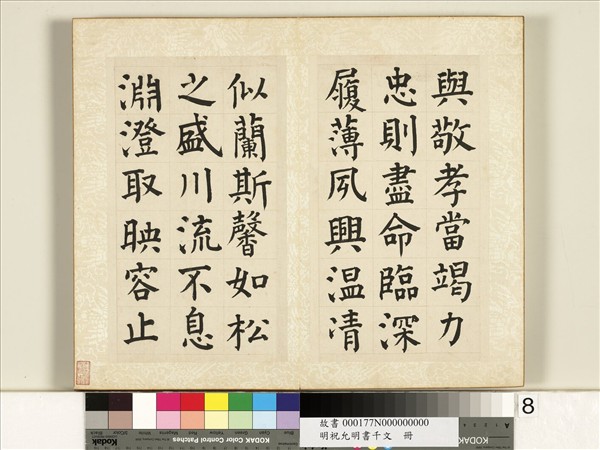 與敬孝當竭力
忠則盡命臨深
履薄夙興温凊
似蘭斯馨如松
之盛川流不息
淵澄取映容止
8
故書 000177N000000000
明祝允明書千文 冊
Kodak
KODAK Color Control Patches